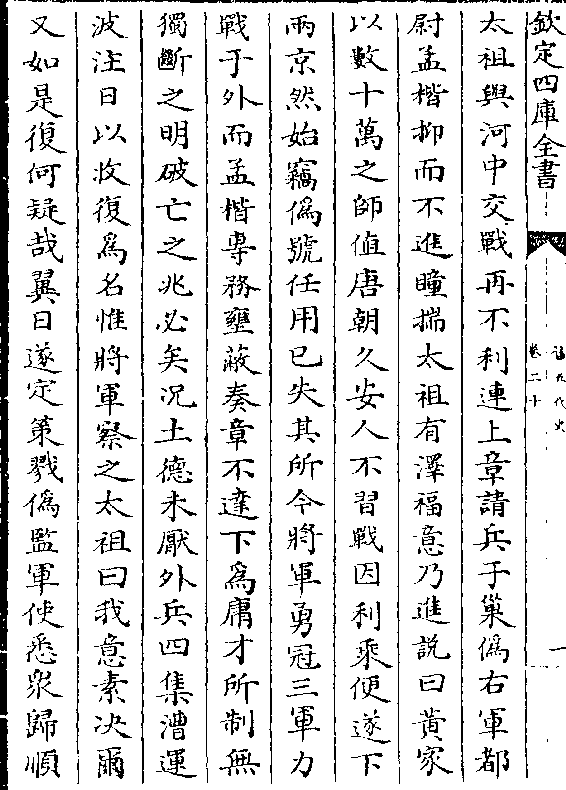 欽定四庫全書
舊五代史
卷二十
一
太祖與河中交戰再不利連上章請兵于巢偽右軍都
尉孟楷抑而不進瞳揣太祖有澤福意乃進說曰黄家
以數十萬之師値唐朝久安人不習戰因利乘便遂下
兩京然始竊偽號任用已失其所今將軍勇冠三軍力
戰于外而孟楷專務壅蔽奏章不達下為庸才所制無
獨斷之明破亡之兆必矣况土德未厭外兵四集漕運
波注日以收復為名惟將軍察之太祖曰我意素决爾
又如是復何疑哉翼日遂定策戮偽監軍使悉衆歸順